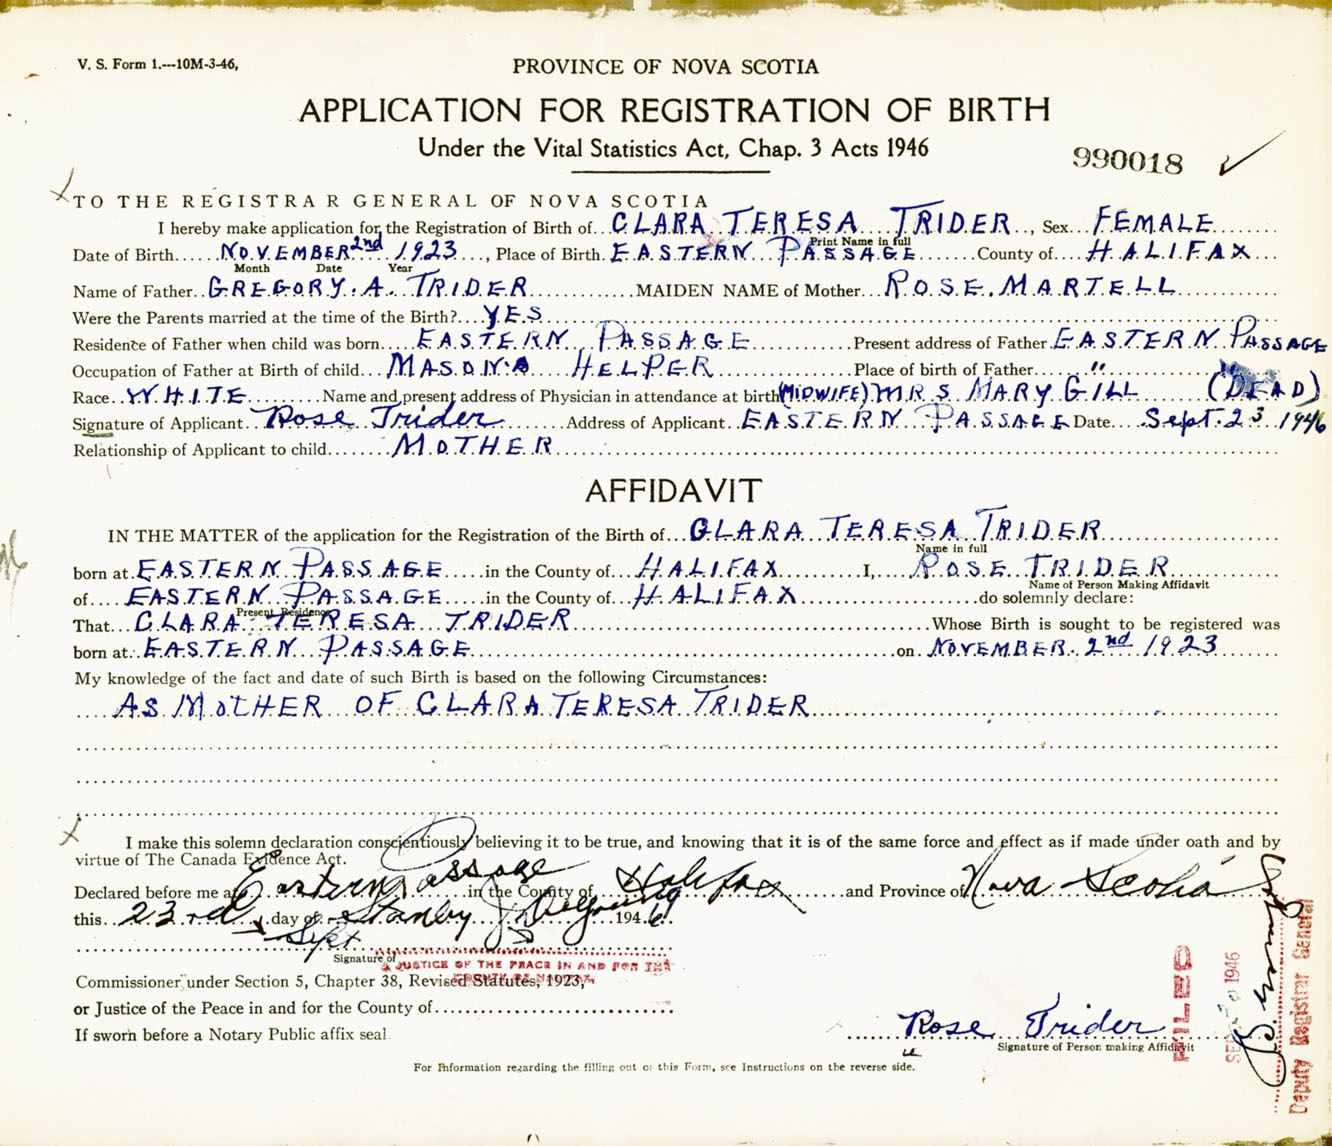 V. S. Form 1.---10M-3-46,
PROVINCE OF NOVA SCOTIA
APPLICATION FOR REGISTRATION OF BIRTH
Under the Vital Statistics Act, Chap. 3 Acts 1946
990018
TO THE REGISTRAR GENERAL OF NOVA SCOTIA
I hereby make application for the Registration of Birth of CLARA TERESA TRIDER, Sex FEMALE
Print Name in full
Date of Birth NOVEMBER 2nd 1923, Place of Birth EASTERN PASSAGE County of HALIFAX
Month Date Year
Name of Father GREGORY. A. TRIDER MAIDEN NAME of Mother ROSE. MARTELL
Were the Parents married at the time of the Birth? YES
Residence of Father when child was born EASTERN PASSAGE Present address of Father EASTERN PASSAGE
Occupation of Father at Birth of child MASON'S HELPER Place of birth of Father "
Race WHITE Name and present address of Physician in attendance at birth (MIDWIFE) MRS MARY GILL (DEAD)
Signature of Applicant Rose Trider Address of Applicant EASTERN PASSAGE Date Sept. 23 1946
Relationship of Applicant to child MOTHER
AFFIDAVIT
IN THE MATTER of the application for the Registration of the Birth of CLARA TERESA TRIDER
Name in full
born at EASTERN PASSAGE in the County of HALIFAX I, ROSE TRIDER
Name of Person Making Affidavit
of EASTERN PASSAGE in the County of HALIFAX do solemnly declare:
Present Residence
That CLARA TERESA TRIDER Whose Birth is sought to be registered was
born at EASTERN PASSAGE on NOVEMBER 2nd 1923
My knowledge of the fact and date of such Birth is based on the following Circumstances:
AS MOTHER OF CLARA TERESA TRIDER
I make this solemn declaration conscientiously believing it to be true, and knowing that it is of the same force and effect as if made under oath and by
virtue of The Canada Evidence Act.
Declared before me at Eastern Passage in the County of Halifax and Province of Nova Scotia
this 23rd day of Sept 1946
Stanley J. DeYoung
Signature of
A JUSTICE OF THE PEACE IN AND FOR THE
Commissioner under Section 5, Chapter 38, Revised Statutes, 1923,
or Justice of the Peace in and for the County of
If sworn before a Notary Public affix seal
Rose Trider
Signature of Person making Affidavit
FILED
1946
Deputy Registrar General
For Information regarding the filling out of this Form, see Instructions on the reverse side.